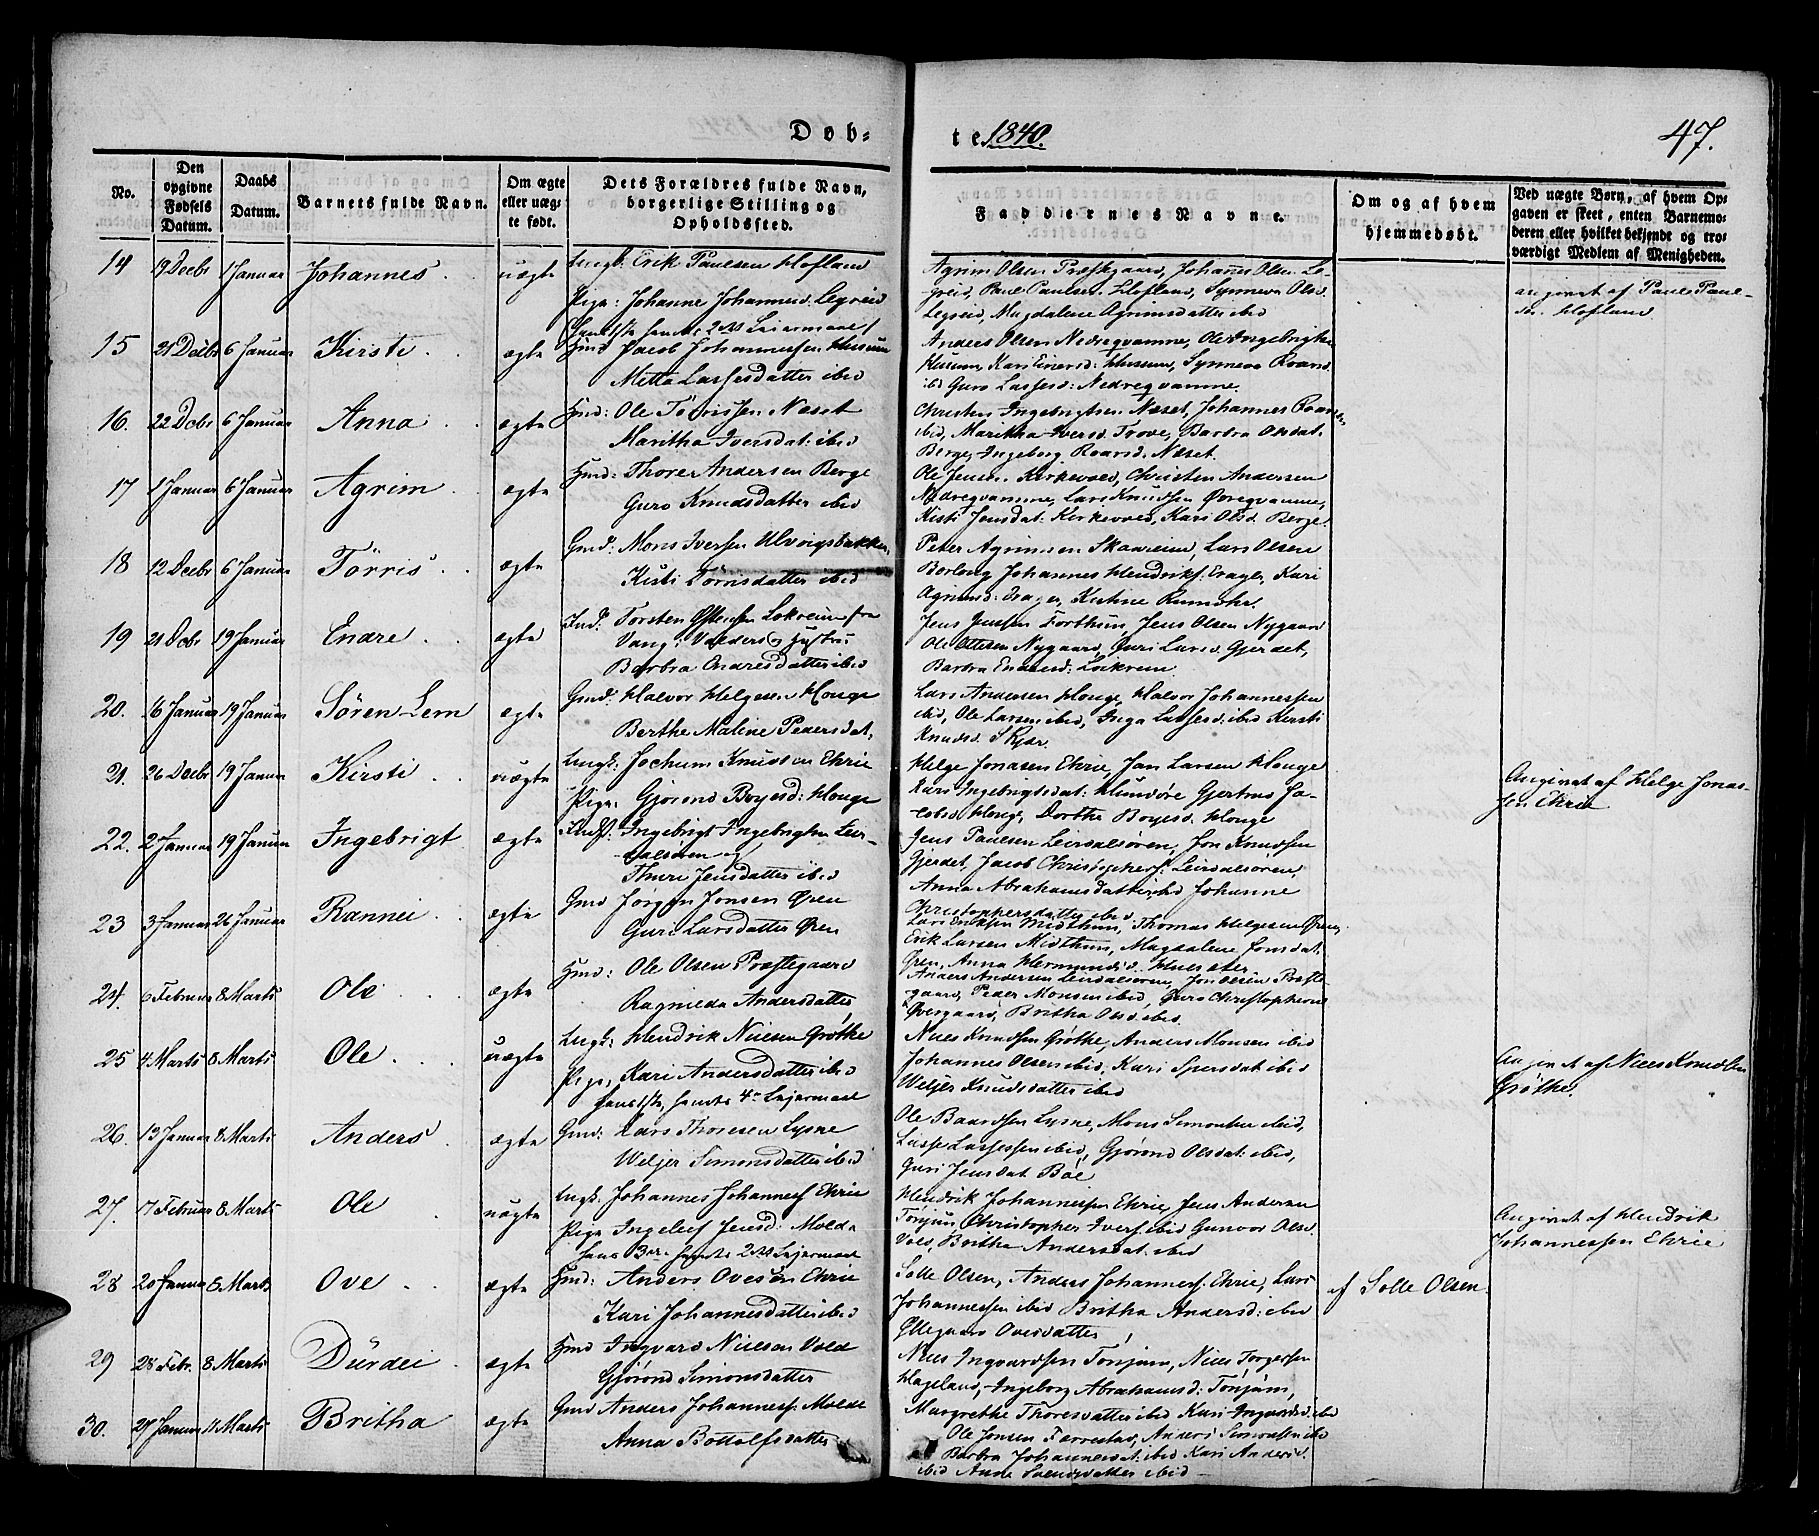 Døb-
te 1840.
47.
No.
Den opgivne Fødsels Datum.
Daabs Datum.
Barnets fulde Navn.
Om ægte eller uægte født.
Dets Forældres fulde Navn, borgerlige Stilling og Opholdssted.
Faddernes Navne.
Om og af hvem hjemmedøbt.
Ved uægte Børn, af hvem Opgaven er skeet, enten Barnemoderen eller hvilket bekjendt og troværdigt Medlem af Menigheden.
14 19 Decbr 1 Januar Johannes uægte Ungk. Erik Paulsen Hofland
Pige: Johanne Johannesd. Legreid
Agrim Olsen Præstgaard, Johannes Olsen Le-
greid, Paul Paulsen Hofland, Synneva Olsd.
Legreid, Magdalene Agrimsdatter ibid
angivet af Paul Paul-
sen Hofland
15 21 Decbr 6 Januar Kirsti ægte Hmd Jacob Johannessen Husum
Mette Lassesdatter ibid
Anders Olsen Nedreqvamme, Ole Ingebrigtsen
Husum, Kari Einersd: Husum, Synneva Roarsd.
ibid Guro Lassesd: Nedreqvamme.
16. 22 Decbr 6 Januar Anna ægte Hmd: Ole Tørrissen Næset
Maritha Iversdat: ibid
Christen Ingebrigtsen Næset, Johannes Roarsen
ibid, Maritha Iversd. Trove, Barbra Olsdat:
Berge, Ingeborg Roarsd. Næset.
17 1 Januar 6 Januar Agrim ægte Hmd: Thore Andersen Berge
Guro Knudsdatter ibid
Ole Jensen Kirkevold, Christen Andersen
Nedreqvamme, Lars Knudsen Øvreqvamme,
Kisti Jensdat: Kirkevold, Kari Olsd. Berge.
18 12 Decbr 6 Januar Tørris ægte Gmd: Mons Iversen Ulvigsbakken
Kisti Tørrisdatter ibid
Peter Agrimsen Skaareim, Lars Olsen
Borloug Johannes Hendriks: Erager, Kari
Agrimsd: Erager, Kirstine
19 21 Decbr 19 Januar Endre ægte Ind: Torsten Østensen Lokreim fra
Vang i Valders og Hustru
Barbra Endresdatter ibid
Jens Jenssen Forthun, Jens Olsen Nygaard
Ole Ottesen Nygaard, Guri Larsd. Gjerdet,
Barbra Endresd: Lokreim
20. 16 Januar 19 Januar Sören Lem ægte Gmd: Halvor Helgesen Houge
Berthe Maline Pedersdat.
Lars Andersen Houge, Halvor Johannessen
ibid, Ole Larsen ibid, Inga Lassesd. ibid Kersti
Knudsd. Skjær.
21. 26 Decbr 19 Januar Kirsti uægte Ungk: Jochum Knudsen Ehrie
Pige: Gjørond Boyesd: Houge
Helge Jonasen Ehrie, Jan Larsen Houge
Kari Ingebrigtsdat: Hunsøre Gjertrus Ja-
cobsd Houge, Dorthe Boyesd. Houge
Angivet af Helge Jonas-
sen Ehrie
22. 2 Januar 19 Januar Ingebrigt ægte Ingebrigt Ingebrigtsen Leir-
dalsøren og
Thuri Jensdatter ibid
Jens Paulsen Leirdalsøren, Jon Knudsen
Gjerdet, Jacob Christophers: Leirdalsøren,
Anna Abrahamsdatter ibid Johanne
Christophersdatter ibid
23 3 Januar 26 Januar Rannei ægte Gmd Jørgen Jonsen Øren
Guri Larsdatter Øren
Lars Midthun, Thomas Helgesen Øren,
Erik Larsen Midthun, Magdalene Jonsdat.
Øren, Anna Hermundsd. Husæter
24. 6 Februar 8 Marts Ole ægte Hmd: Ole Olsen Præstegaard
Ragnilda Andersdatter
Anders Andersen Leirdalsøren, Jon Olsen Præste-
gaard, Peder Monsen ibid, Guro Christophersd.
Øvregaard, Britha Olsd: ibid.
25 4 Marts 8 Marts Ole uægte Ungk: Hendrik Nielsen Grøthe
Pige, Kari Andersdatter ibid
hans 1ste, hendes 4de Leiermaal
Niels Knudsen Grøthe, Anders Monsen ibid
Johannes Olsen ibid, Kari Spersdat ibid
Weljer Knudsdatter ibid
Angivet af Niels Knudsen
Grøthe.
26. 13 Januar 8 Marts Anders ægte Gmd: Lars Thoresen Lysne
Weljer Simonsdatter ibid
Ole Baardsen Lysne, Mons Simonsen ibid,
Lasse Lassessen ibid, Gjørond Olsdat: ibid,
Guri Jensdat Bøe
27. 7 Februar 8 Marts Ole uægte Ungk. Johannes Johanness Ehrie
Pige Ingeleif Jensd: Molde
hans 3die hendes 2det Leiermaal
Hendrik Johannessen Ehrie, Jens Andersen
Tonjum, Christopher Ivers: ibid Gunvor Olsd.
Vold, Britha Andersdat: ibid
Angivet af Hendrik
Johannessen Ehrie
28 20 Januar 8 Marts Ove ægte Hmd: Anders Ovesen Ehrie
Kari Johannesdatter ibid
Solle Olsen, Anders Johanness: Ehrie, Lars
Johannessen ibid Britha Andersd: ibid
Ovesdatter
af Solle Olsen.
29 28 Febr. 8 Marts Dürdei ægte Hmd Ingvard Nielsen Vold
Gjørond Simonsdatter
Niels Ingvardsen Tonjum, Niels Torgersen
Hageland, Ingeborg Abrahamsd: Tonjum,
Margrethe Thoresdatter ibid Kari Ingvardsd. ibid
30. 29 Januar 11 Marts Britha ægte Gmd Anders Johanness: Molde
Anna Bottolfsdatter
Ole Jonsen Færrestad, Anders Simonsen ibid
Barbra Johannesdat: ibid Kari Andersd.
ibid Anne Svendsdatter ibid